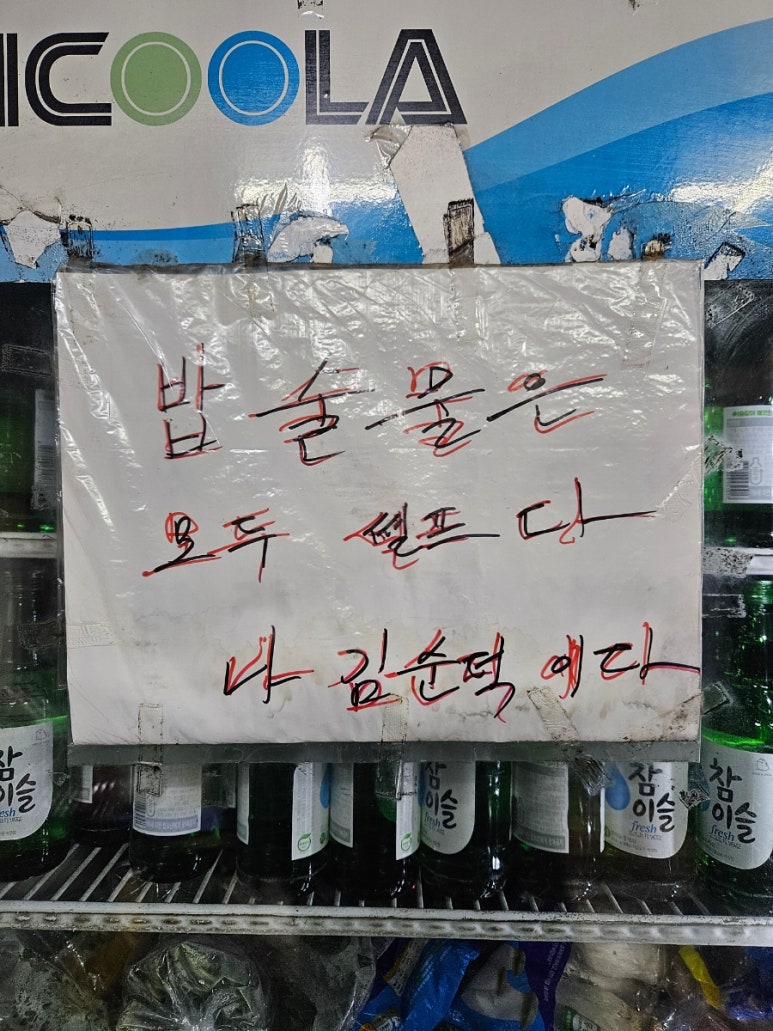 ICOOLA
밥 술 물 은
모두 셀프다
나 김순덕 이다
참이슬
fresh
참이슬
fresh
참이슬
fresh
참이슬
fresh